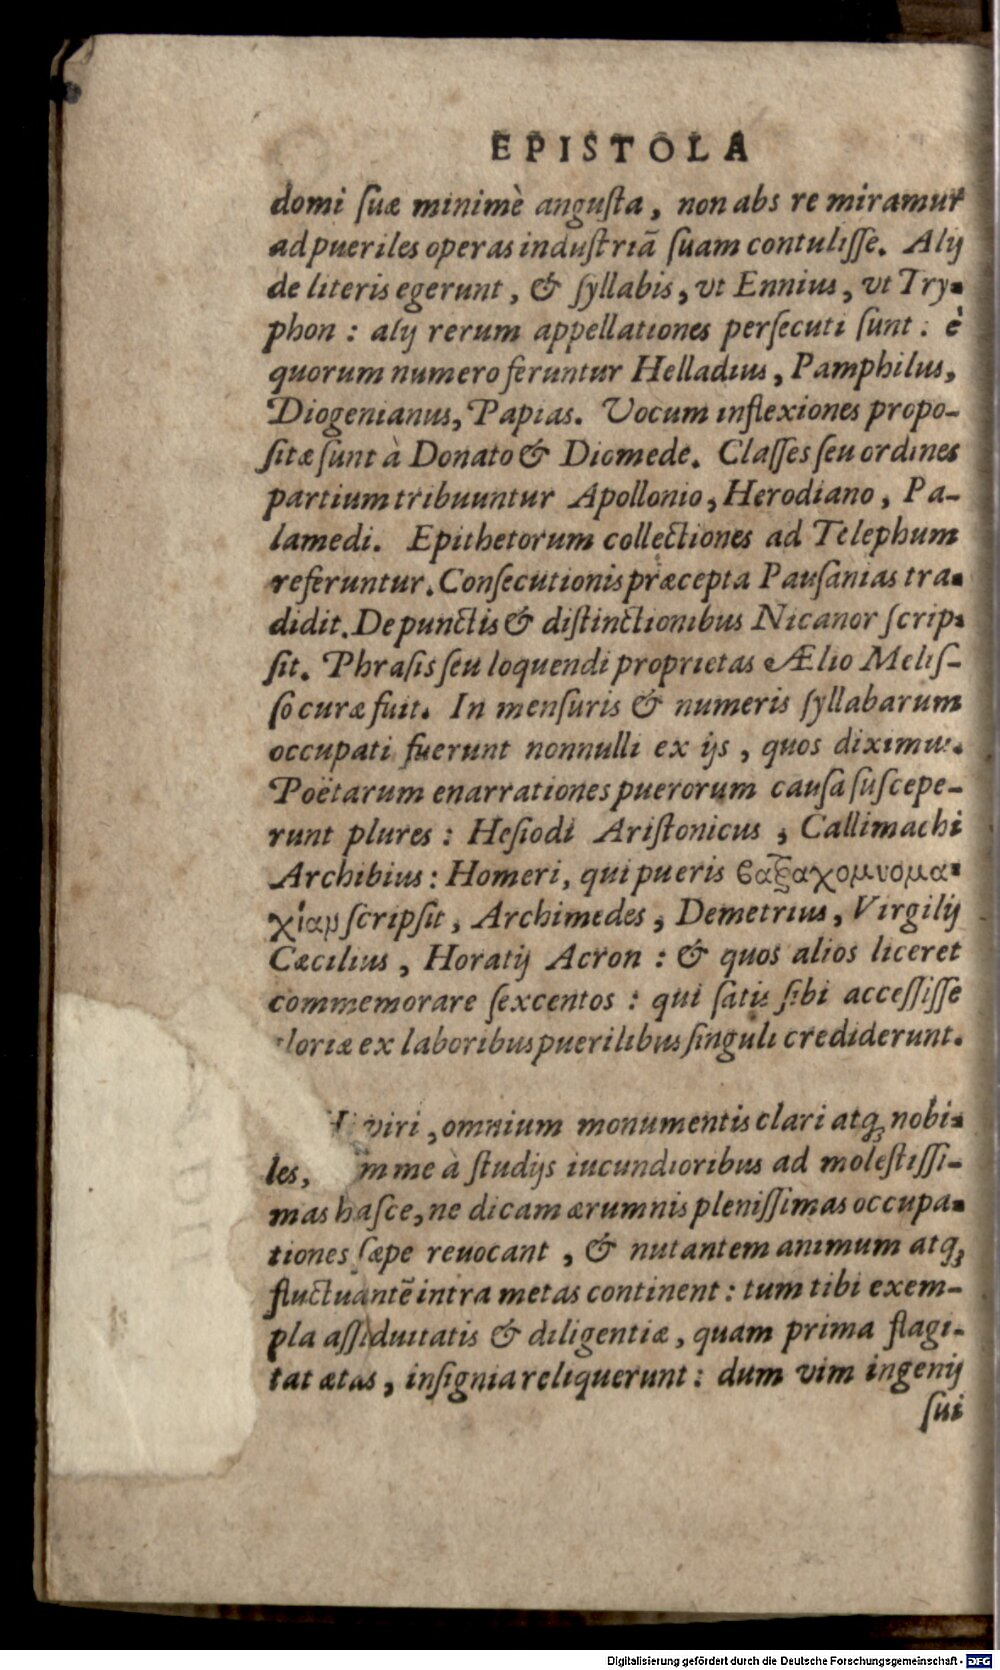 EPISTOLA
domi ſuæ minimè anguſta, non abs re miramur
ad pueriles operas induſtriã ſuam contuliſſe. Alij
de literis egerunt, & ſyllabis, vt Ennius, vt Try-
phon : alij rerum appellationes perſecuti ſunt : è
quorum numero feruntur Helladius, Pamphilus,
Diogenianus, Papias. Vocum inflexiones propo-
ſitæ ſunt à Donato & Diomede. Claſſes ſeu ordines
partium tribuuntur Apollonio, Herodiano, Pa-
lamedi. Epithetorum collectiones ad Telephum
referuntur. Conſecutionis præcepta Pauſanias tra-
didit. De punctis & diſtinctionibus Nicanor ſcrip-
ſit. Phraſis ſeu loquendi proprietas Ælio Meliſ-
ſo curæ fuit. In menſuris & numeris ſyllabarum
occupati fuerunt nonnulli ex ijs, quos diximus.
Poëtarum enarrationes puerorum cauſa ſuſcepe-
runt plures : Heſiodi Ariſtonicus, Callimachi
Archibius : Homeri, qui pueris βαξαχομυομα-
χίαμ ſcripſit, Archimedes, Demetrius, Virgilij
Cæcilius, Horatij Acron : & quos alios liceret
commemorare ſexcentos : qui ſatis ſibi acceſſiſſe
loriæ ex laboribus puerilibus ſinguli crediderunt.
H viri, omnium monumentis clari atq; nobi-
les, m me à ſtudijs iucundioribus ad moleſtiſſi-
mas haſce, ne dicam ærumnis pleniſſimas occupa-
tiones ſæpe reuocant, & nutantem animum atq;
fluctuantẽ intra metas continent : tum tibi exem-
pla aſſiduitatis & diligentiæ, quam prima flagi-
tat ætas, inſignia reliquerunt : dum vim ingenij
ſui
Digitalisierung gefördert durch die Deutsche Forschungsgemeinschaft - DFG